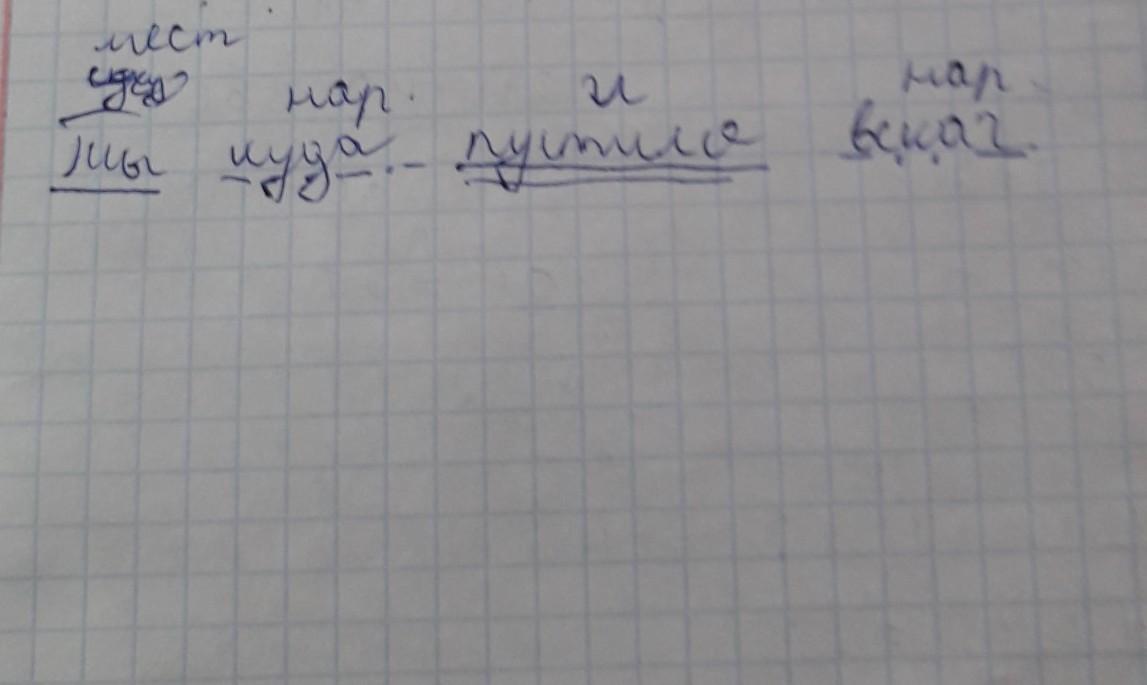 мест
нар. гл нар.
Ты куда пустился вскач.